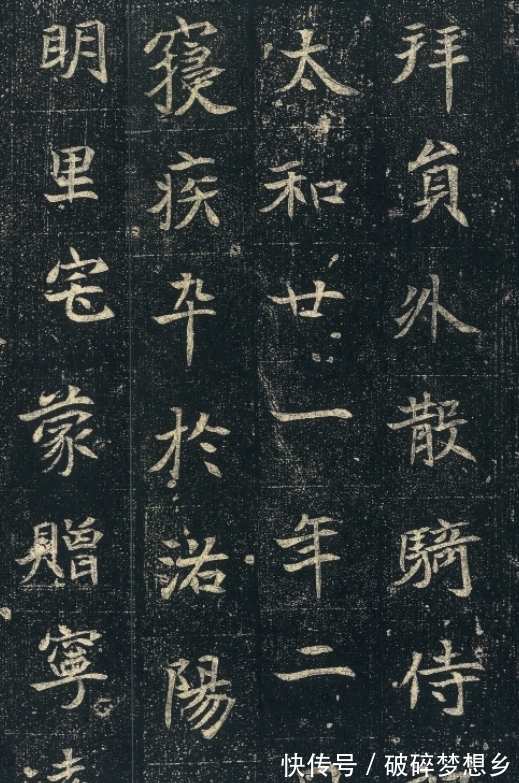 拜員外散騎侍
太和廿一年二
寢疾卒於洛陽
明里宅蒙贈寧
快传号 / 破碎梦想乡